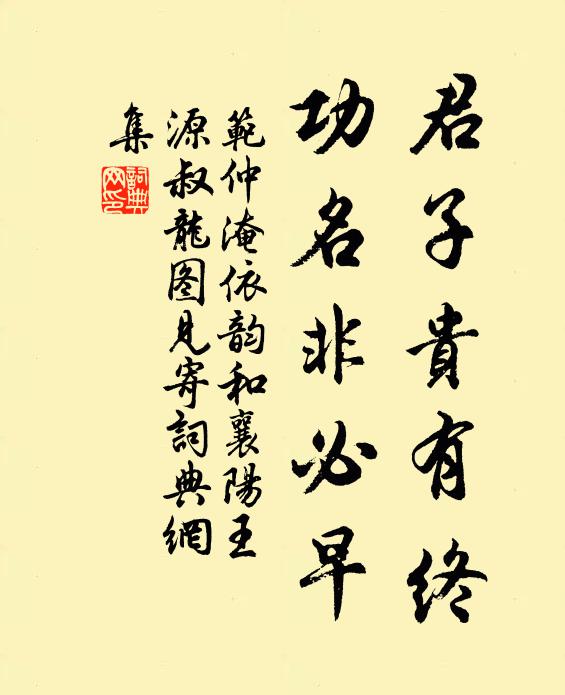 君子貴有終
功名非必早
範仲淹依韵和襄陽王
源叔龍图見寄詞典網
集
詞典
网印